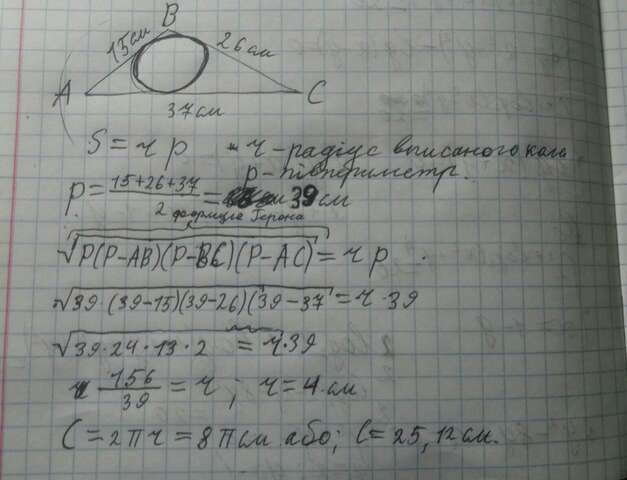 B
15см 26см
A C
37см
S = r p - r - радіус вписаного кола
p - півпериметр.
p = 15+26+37 / 2 = 39 см
формула Герона
√P(P-AB)(P-BC)(P-AC) = r p.
√39·(39-15)(39-26)(39-37) = r·39
√39·24·13·2 = r·39
156/39 = r; r = 4 см
C = 2πr = 8π см або; C = 25,12 см.